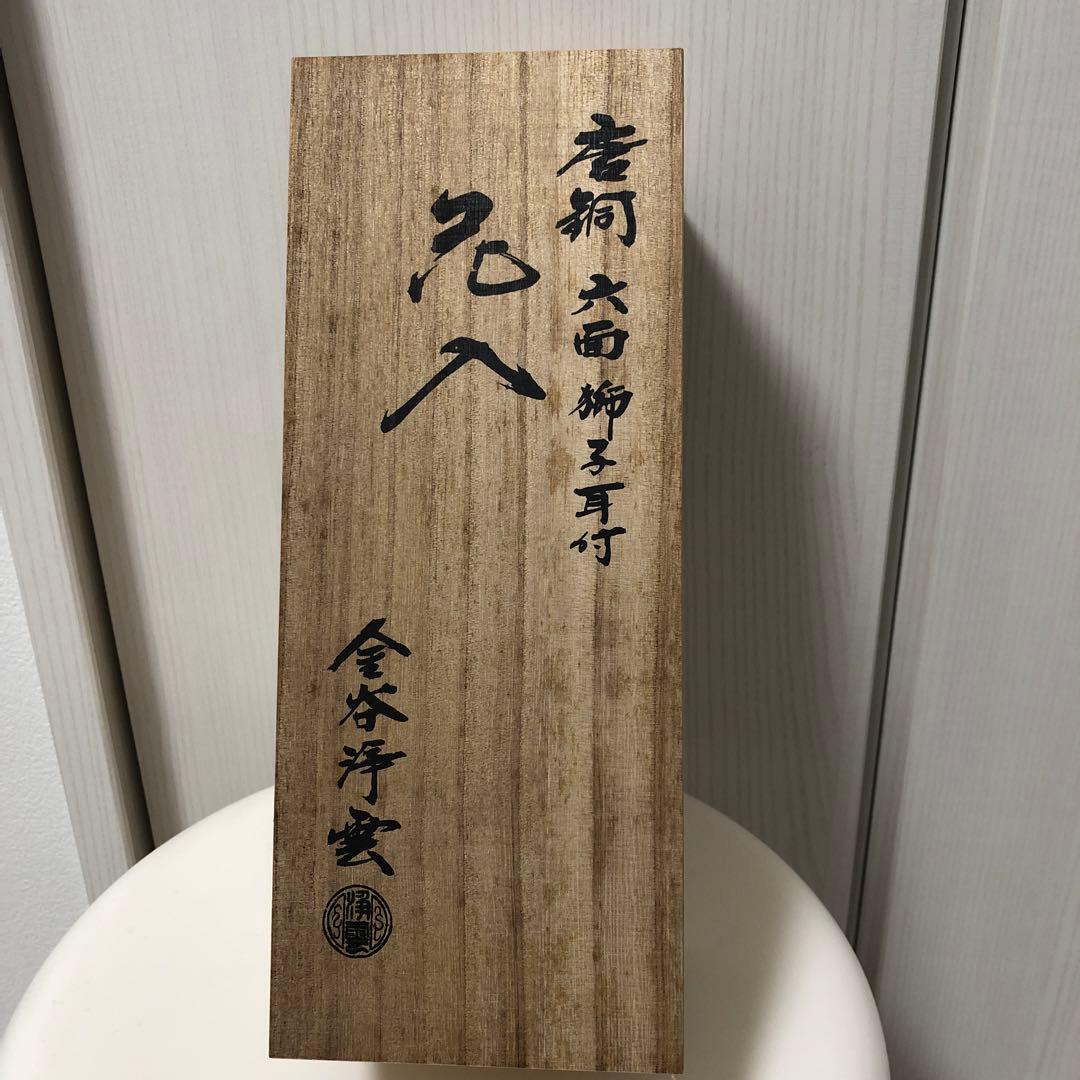 唐銅 六面 獅子耳付
花入
金谷浄雲
浄雲